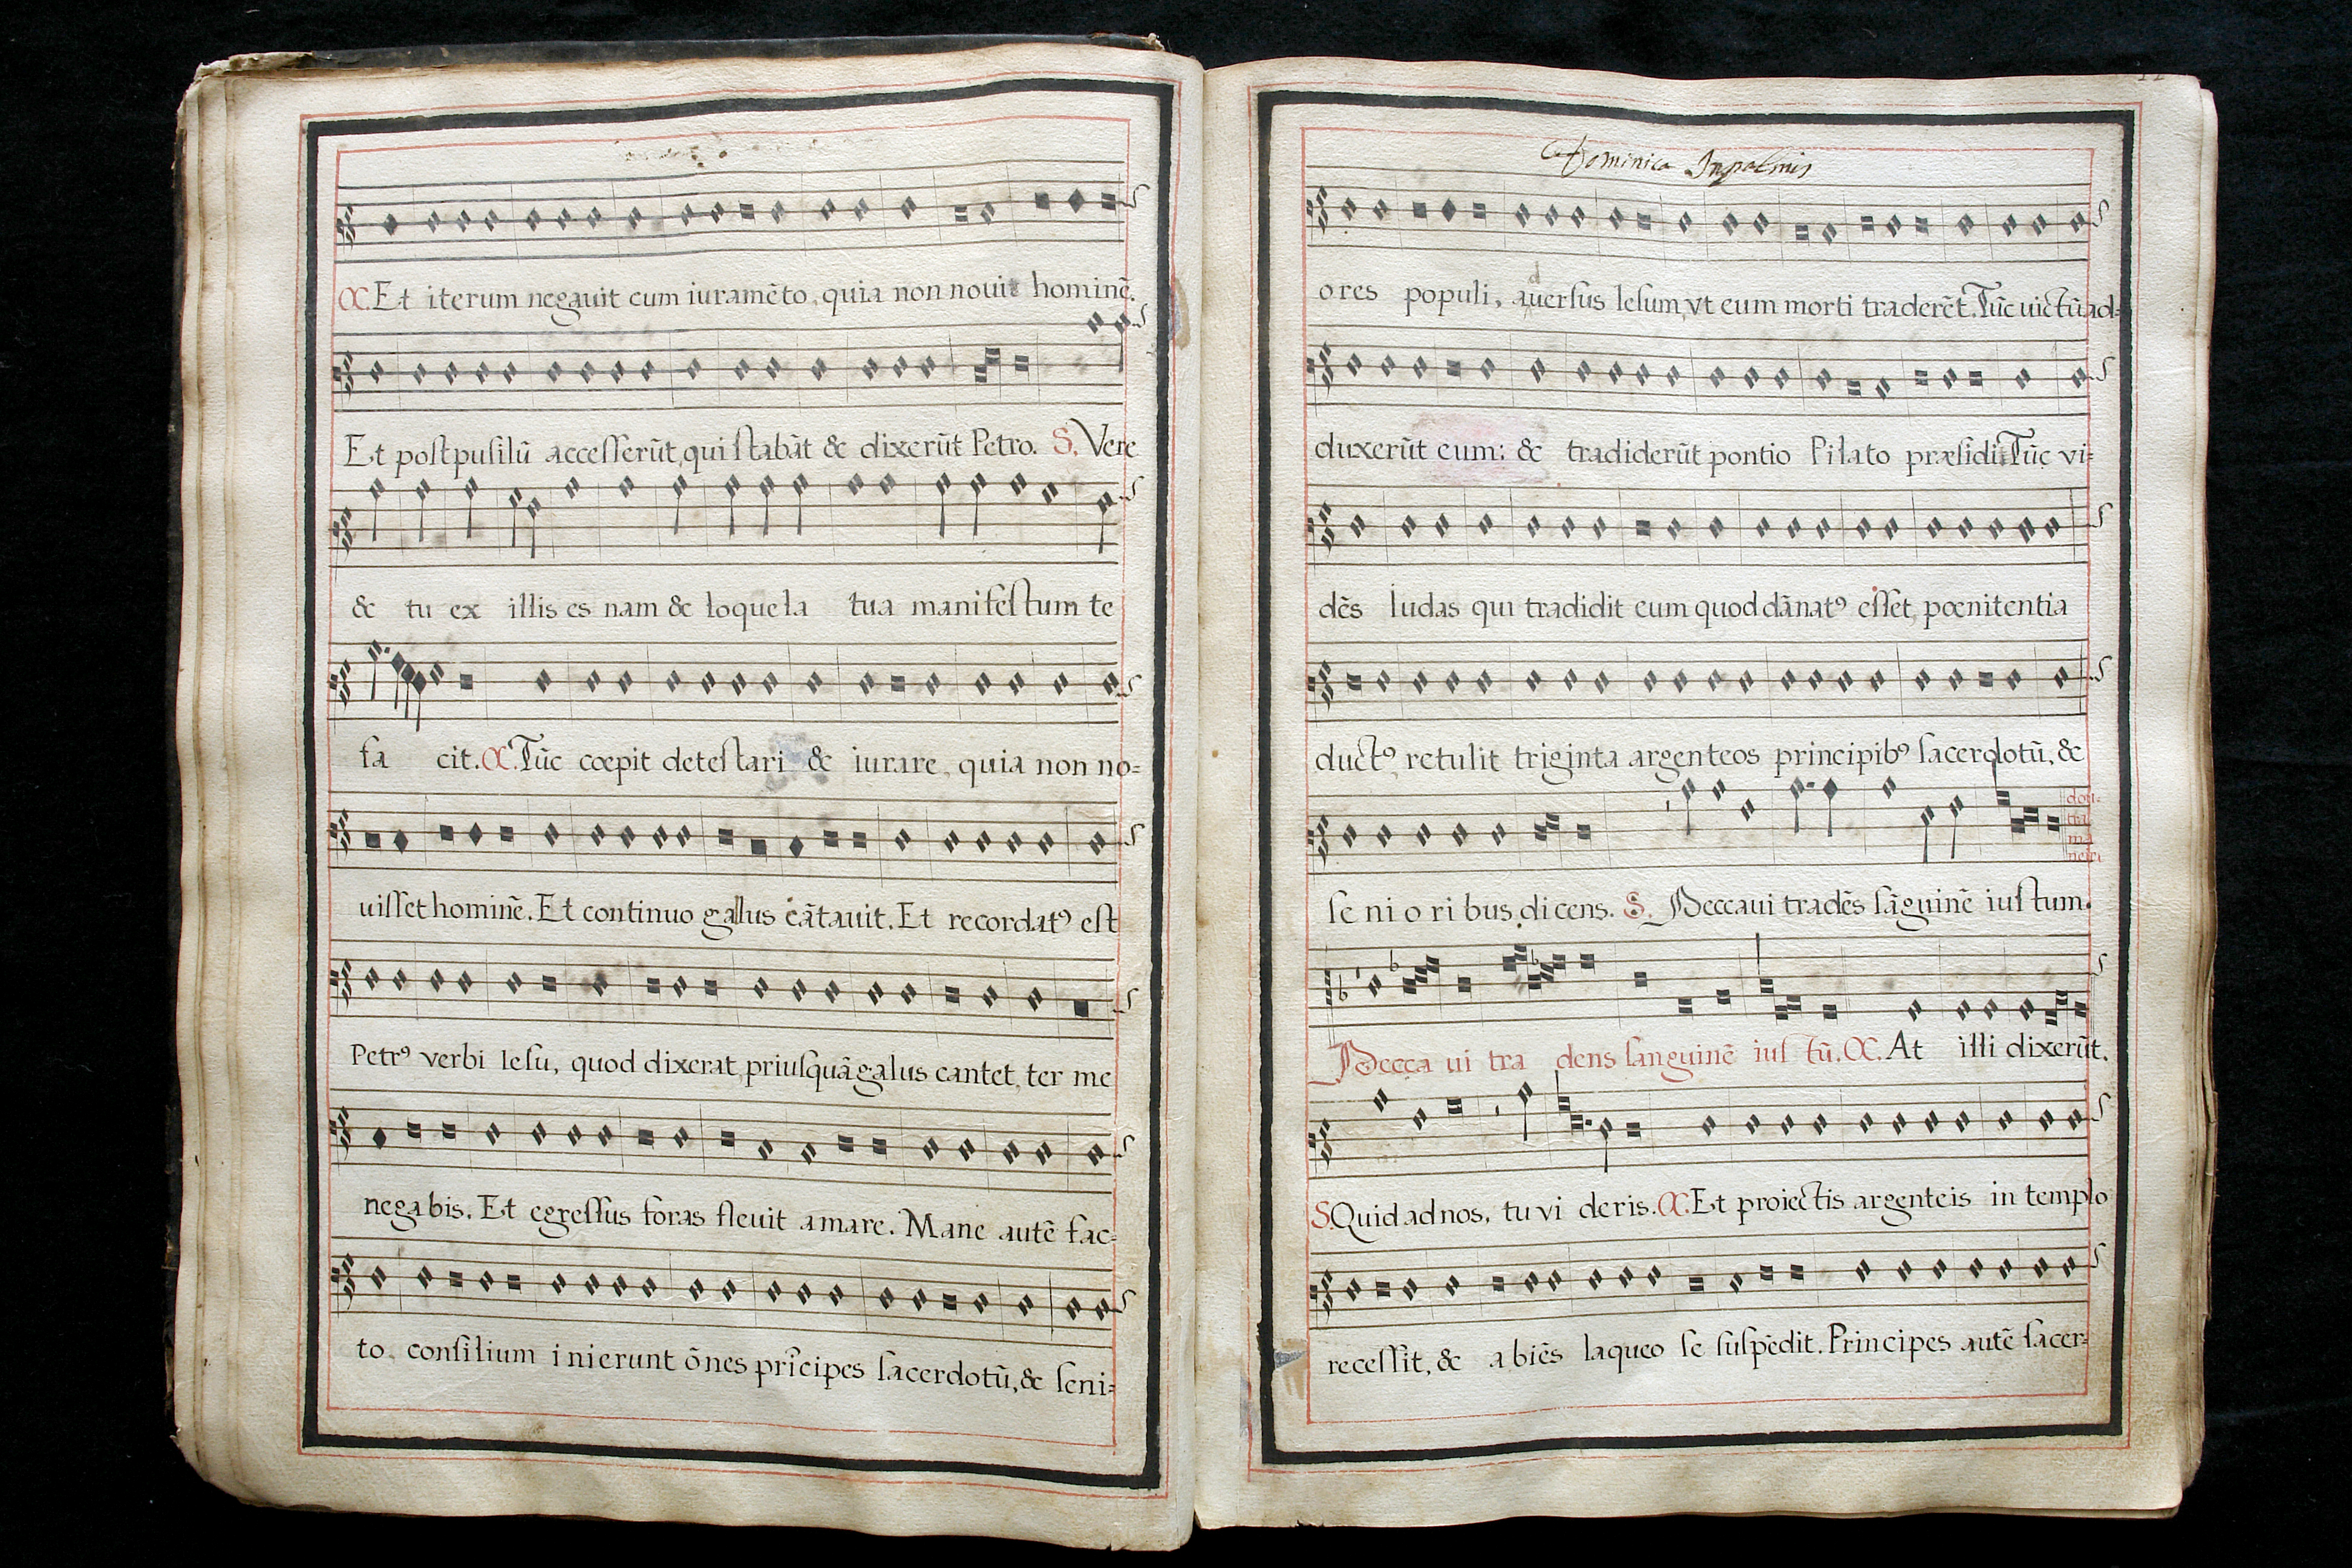 C. Et iterum negauit cum iuramẽto, quia non nouit hominẽ.
Et post pusilũ accesserũt, qui stabãt & dixerũt Petro. S. Vere
& tu ex illis es nam & loquela tua manifestum te
fa cit. C. Tũc cœpit detestari & iurare, quia non no=
uisset hominẽ. Et continuo galus cãtauit. Et recordatꝰ est
Petrꝰ verbi Iesu, quod dixerat, priusquã galus cantet, ter me
negabis. Et egressus foras fleuit amare. Mane autẽ fac=
to consilium inierunt õnes prĩcipes sacerdotũ, & seni=
Dominica In palmis
ores populi, aduersus Iesum, vt eum morti traderẽt. Tũc uictũ ad=
duxerũt eum: & tradiderũt pontio Pilato præsidi. Tũc vi=
dẽs Iudas qui tradidit eum quod dãnatꝰ esset, pœnitentia
ductꝰ, retulit triginta argenteos principibꝰ sacerdotũ, &
se ni o ri bus, dicens. S. Peccaui tradẽs sãguinẽ iustum.
Pecca ui tra dens sanguinẽ ius tũ. C. At illi dixerũt.
S. Quid ad nos, tu vi deris. C. Et proiectis argenteis in templo
recessit, & abiẽs laqueo se suspẽdit. Principes autẽ sacer=